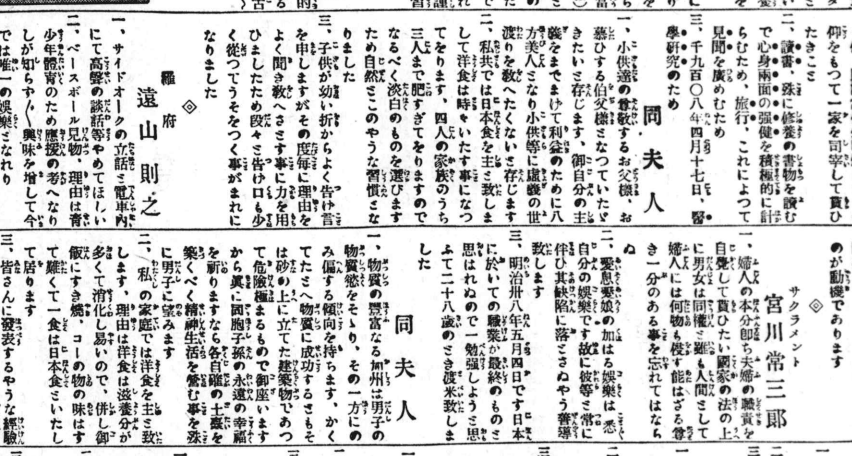 仰をもつて一家を司宰して貰ひ
たきこと
二、讀書、殊に修養の書物を讀む
で心身兩面の强健を積極的に計
らむため、旅行、これによつて
見聞を廣めむため
三、千九百〇八年四月十七日、醫
學硏究のため
同夫人
一、小供達の尊敬するお父樣、お
慕ひする伯父樣となつていたゞ
きたいと存じます、御自分の主
義をまでまげて利益のために八
方美人となり小供等に虛議の世
渡りを敎へたくないと存じます
二、私共では日本食を主と致しま
して洋食は時々いたす事になつ
てをります、四人の家族のうち
三人まで肥すぎてをりますので
なるべく淡白のものを選びます
ため自然とこのやうな習慣とな
りました
三、子供が幼い折からよく告げ言
を申しますがその度每に理由を
よく聞き敎へさとす事に力を用
ひましたため段々と告け口も少
く從つてうそをつく事がまれに
なりました
◇
羅府
遠山則之
一、サイドオークの立話と電車內
にて高聲の談話等やめてほしい
二、ベースボール見物、理由は靑
少年體育のため應援の考へなり
しが知らず〳〵興味を增して今
では唯一の娛樂となれり
のが動機であります
◇
サクラメント
宮川常三郞
一、婦人の本分卽ち夫婦の職責を
自覺して貰ひたい國家の法の上
に男女は同權と雖も人間として
婦人には何物も侵す能はざる尊
き一分のある事を忘れてはなら
ぬ
二、愛息愛娘の加はる娛樂は、悉
自分の娛樂です故に彼等と常に
伴ひ其缺陷に落さぬやう善導
致します
三、明治卅八年五月四日です日本
に於いての職業が最終のものと
思はれぬので一勉强しようと思
ふて二十八歲のとき渡米致しま
した
同夫人
一、物質の豐富なる加州は男子の
物質慾をそゝり、その一方にの
み偏する傾向を持ちます、かく
てたとへ物質に成功するともそ
は砂の上に立てた建築物であつ
て危險極まるもので御座います
から眞に同胞子孫の永遠の幸福
を祈りますなら各自確の土臺を
築くべく精神生活を營む事を殊
に男子に望みます
二、私の家庭では洋食を主と致
します、理由は洋食は滋養分が
多くて消化し易いので、併し御
飯にすき燒、コーの物の味はす
て難くて一食は日本食といたし
て居ります
三、皆さんに發表するやうな經驗